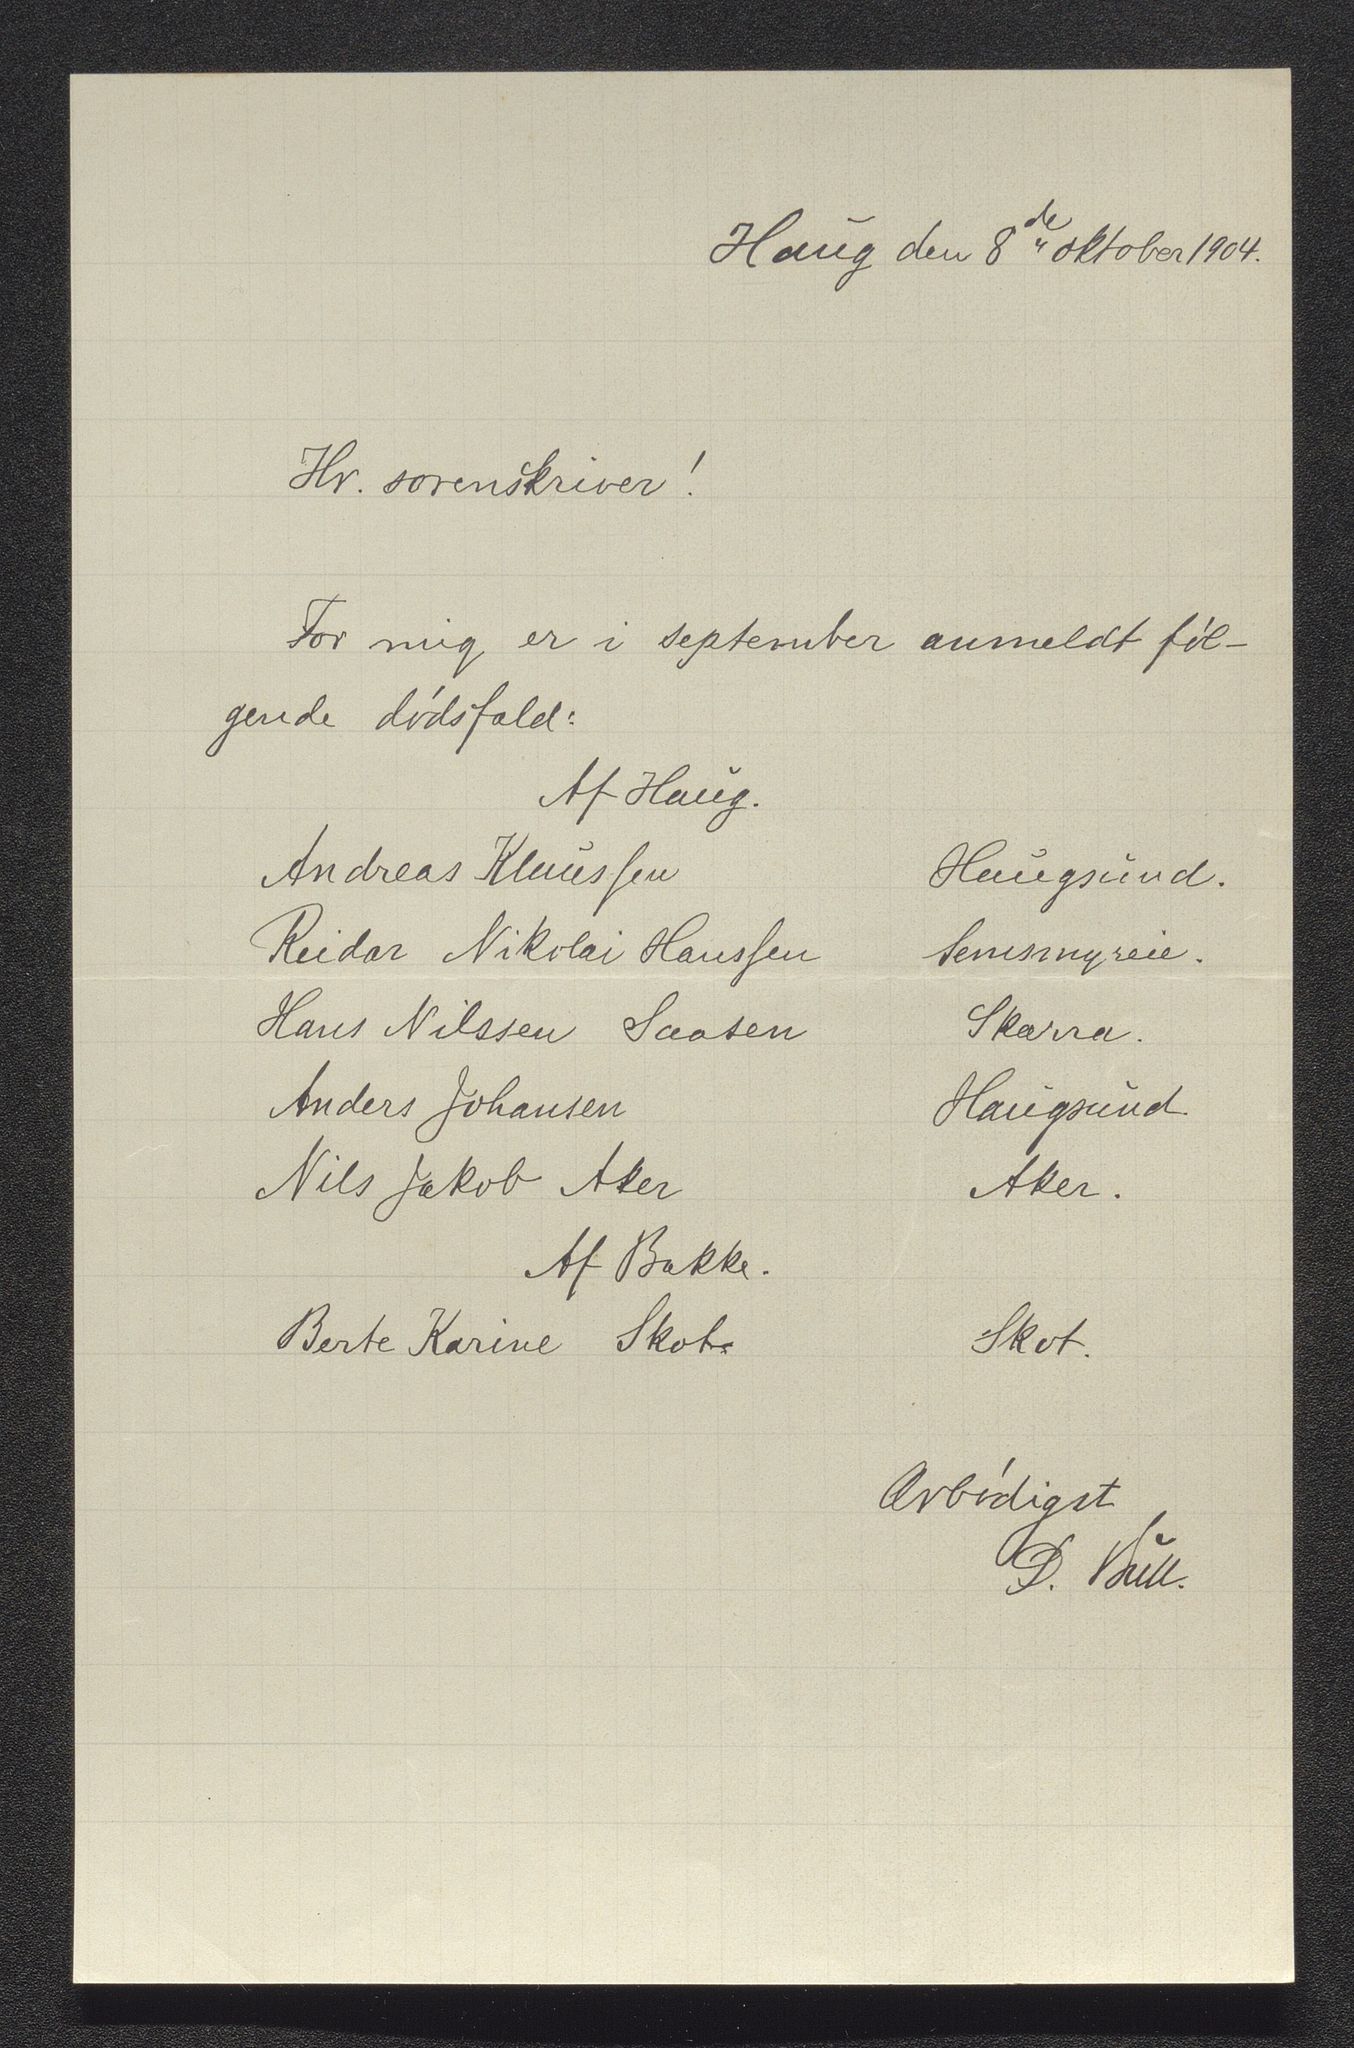 Haug den 8de oktober 1904.
Hr. sorenskriver!
For mig er i september anmeldt føl-
gende dødsfald:
Af Haug.
Andreas Klaussen Haugsund.
Reidar Nikolai Hanssen Semsmyreie.
Hans Nilssen Saasen Skarra.
Anders Johansen Haugsund
Nils Jakob Aker Aker.
Af Bakke.
Berte Karine Skot. Skot.
Ærbødigst
D. Bull.